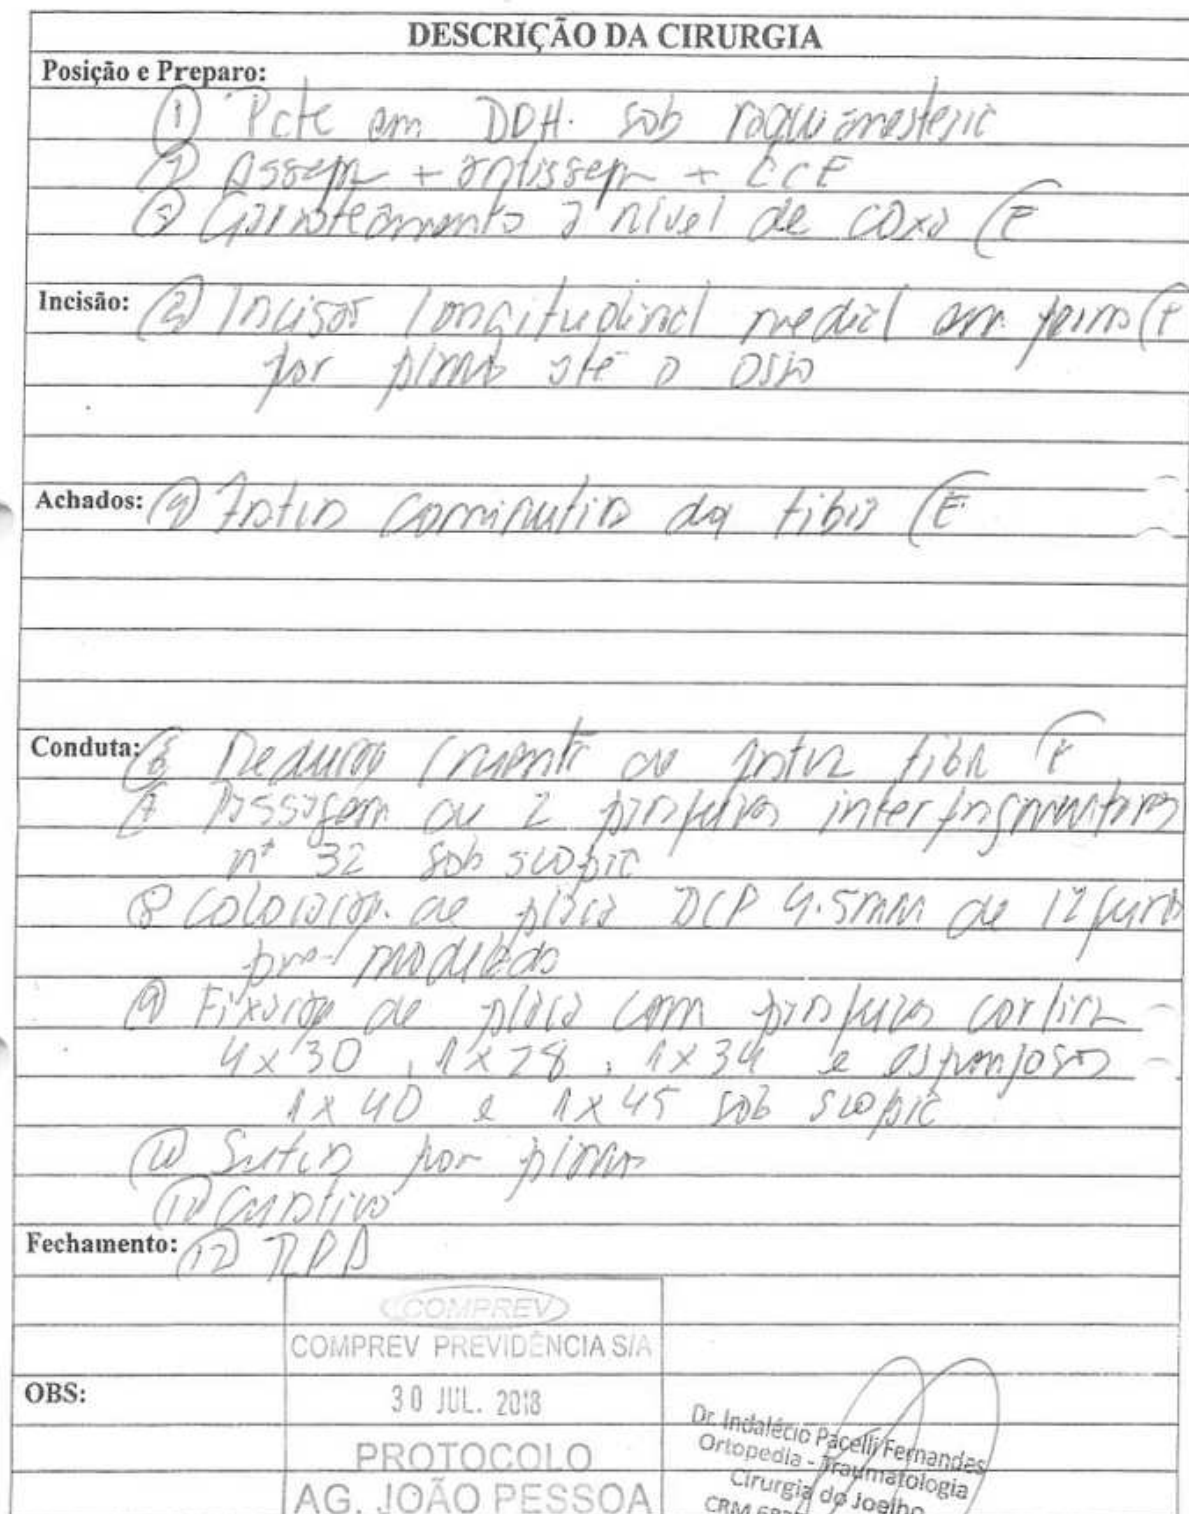 DESCRIÇÃO DA CIRURGIA
Posição e Preparo:
① Pcte em DDH. sob raquianestesia
② Assepsia + antissepsia + CCE
③ Garroteamento a nível de coxa (E
Incisão: ④ Incisão longitudinal medial em perna (E
por planos até o osso
Achados: Fratura cominutiva da tíbia (E
Conduta: ⑥ Redução cruenta de fratura tíbia (E
⑦ Passagem de 2 parafusos interfragmentários
nº 32 sob scopia
⑧ Colocação de placa DCP 4.5mm de 12 furos
pré-moldada
⑨ Fixação de placa com parafusos cortical
4x30, 1x28, 1x34 e esponjosos
1x40 e 1x45 sob scopia
⑩ Sutura por planos
⑪ Curativo
Fechamento: ⑫ RPA
COMPREV
COMPREV PREVIDÊNCIA S/A
OBS:
30 JUL. 2018
PROTOCOLO
AG. JOÃO PESSOA
Dr. Indalécio Pacelli Fernandes
Ortopedia - Traumatologia
Cirurgia do Joelho
CRM